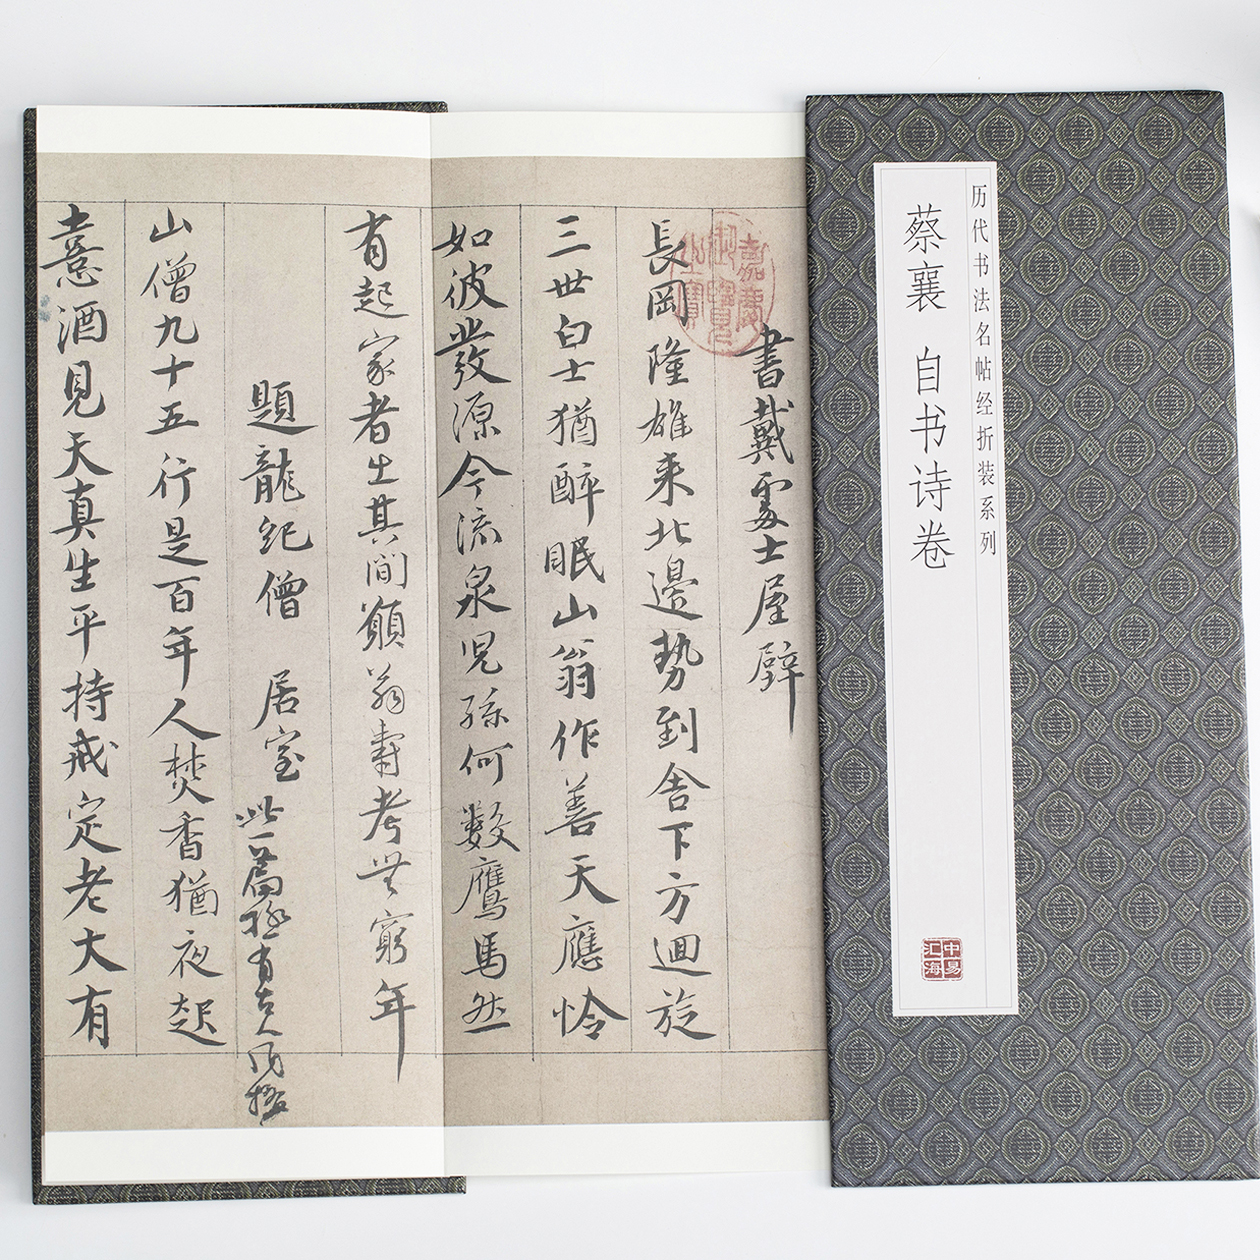 历代书法名帖经折装系列
蔡襄 自书诗卷
中易
汇海
嘉慶
御覽
之寶
書戴處士屋壁
長岡隆雄来北邊勢到舍下方迴旋
三世白士猶醉眠山翁作善天應怜
如彼發源今流泉児孫何數鷹馬然
有起家者生其間願翁壽考無窮年
題龍紀僧 居室 此一篇極有古人風格
山僧九十五行是百年人焚香猶夜起
憙酒見天真生平持戒定老大有